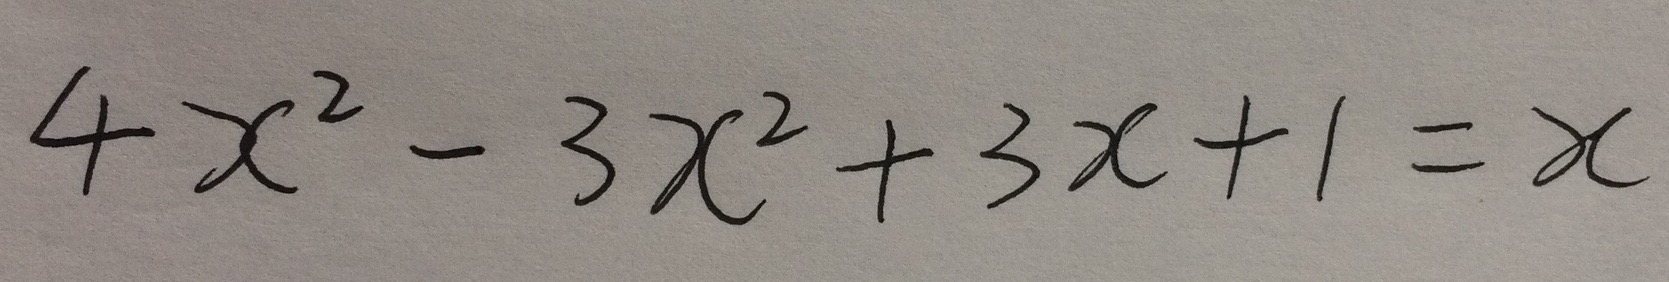 4x² - 3x² + 3x + 1 = x